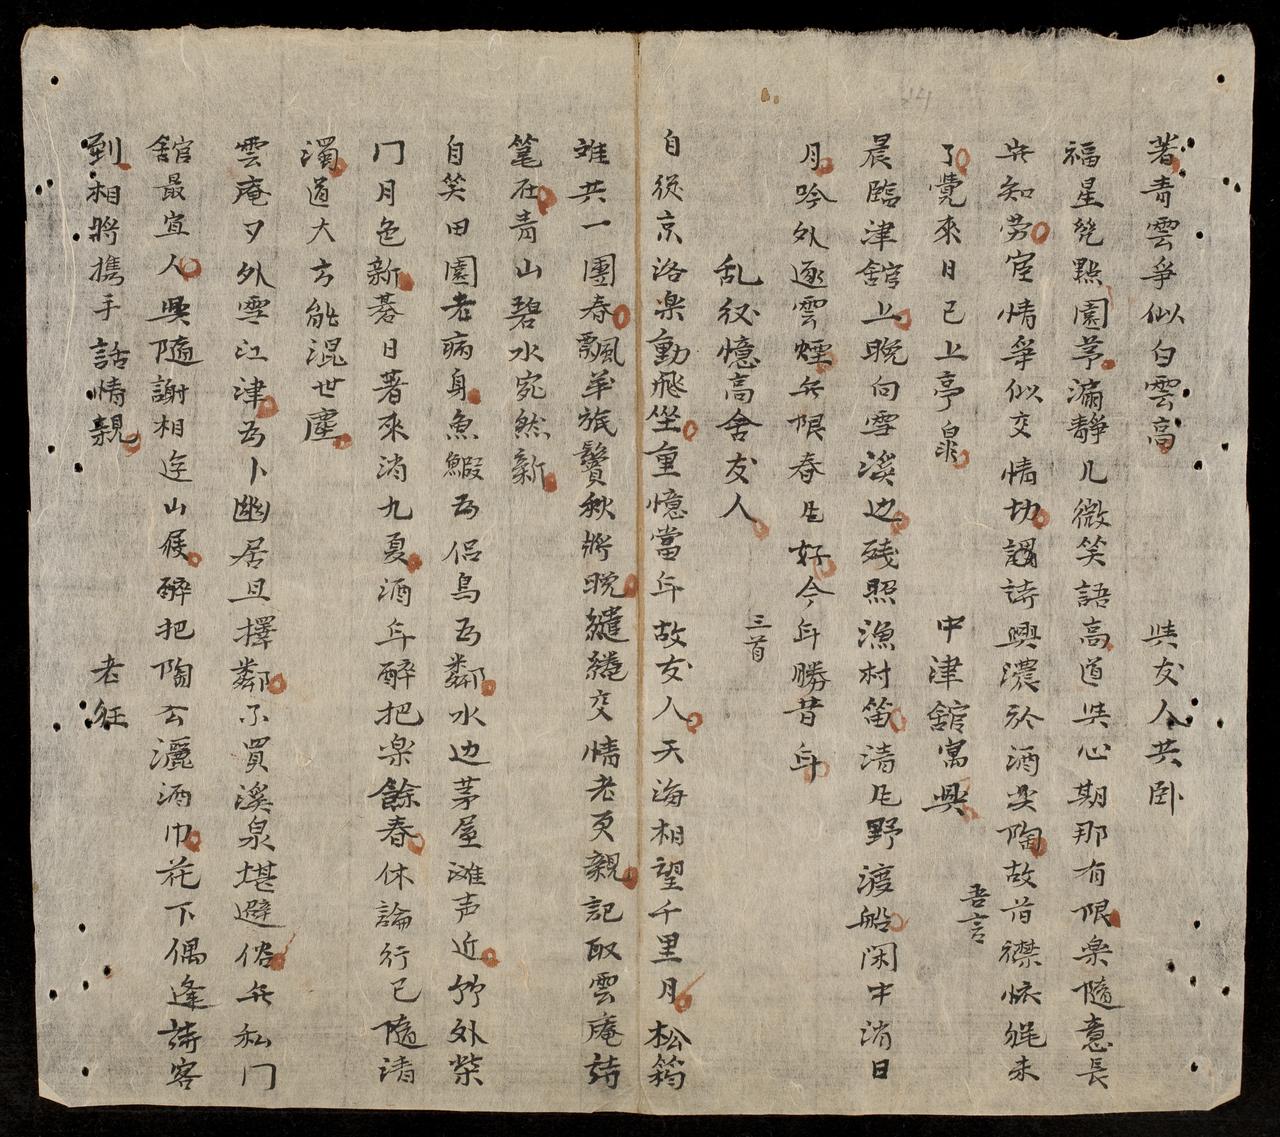 著青雲爭似白雲高 与友人共卧
福星纔點園芽漏靜儿微笑語高道与心期那有限樂隨意長
无知劳宦情爭似交情切謌詩興濃於酒与陶故首襟懷能未
了覺來日已上亭皐 中津舘寓興 吾言
晨臨津舘上晚向雪溪边残照漁村笛清风野渡船闲中消日
月吟外逐雲煙无限春风好今年勝昔年
乱後憶高舍友人 三首
自從京洛樂動飛坐重憶當年故友人天海相望千里月松筠
雖共一團春飄羊旅鬢秋將晚繾綣交情老更親記取雲庵詩
篤在青山碧水宛然新
自笑田園老病身魚鰕为侣鳥为鄰水边茅屋滩声近竹外柴
门月色新碁日著來消九夏酒年醉把樂餘春休論行已隨清
濁道大方能混世塵
雲庵夕外雪江津为卜幽居且擇鄰不買溪泉堪避俗无私门
舘最宜人與隨謝相迮山屐醉把陶公灑酒巾花下偶逢詩客
到相將携手話情親 老紝